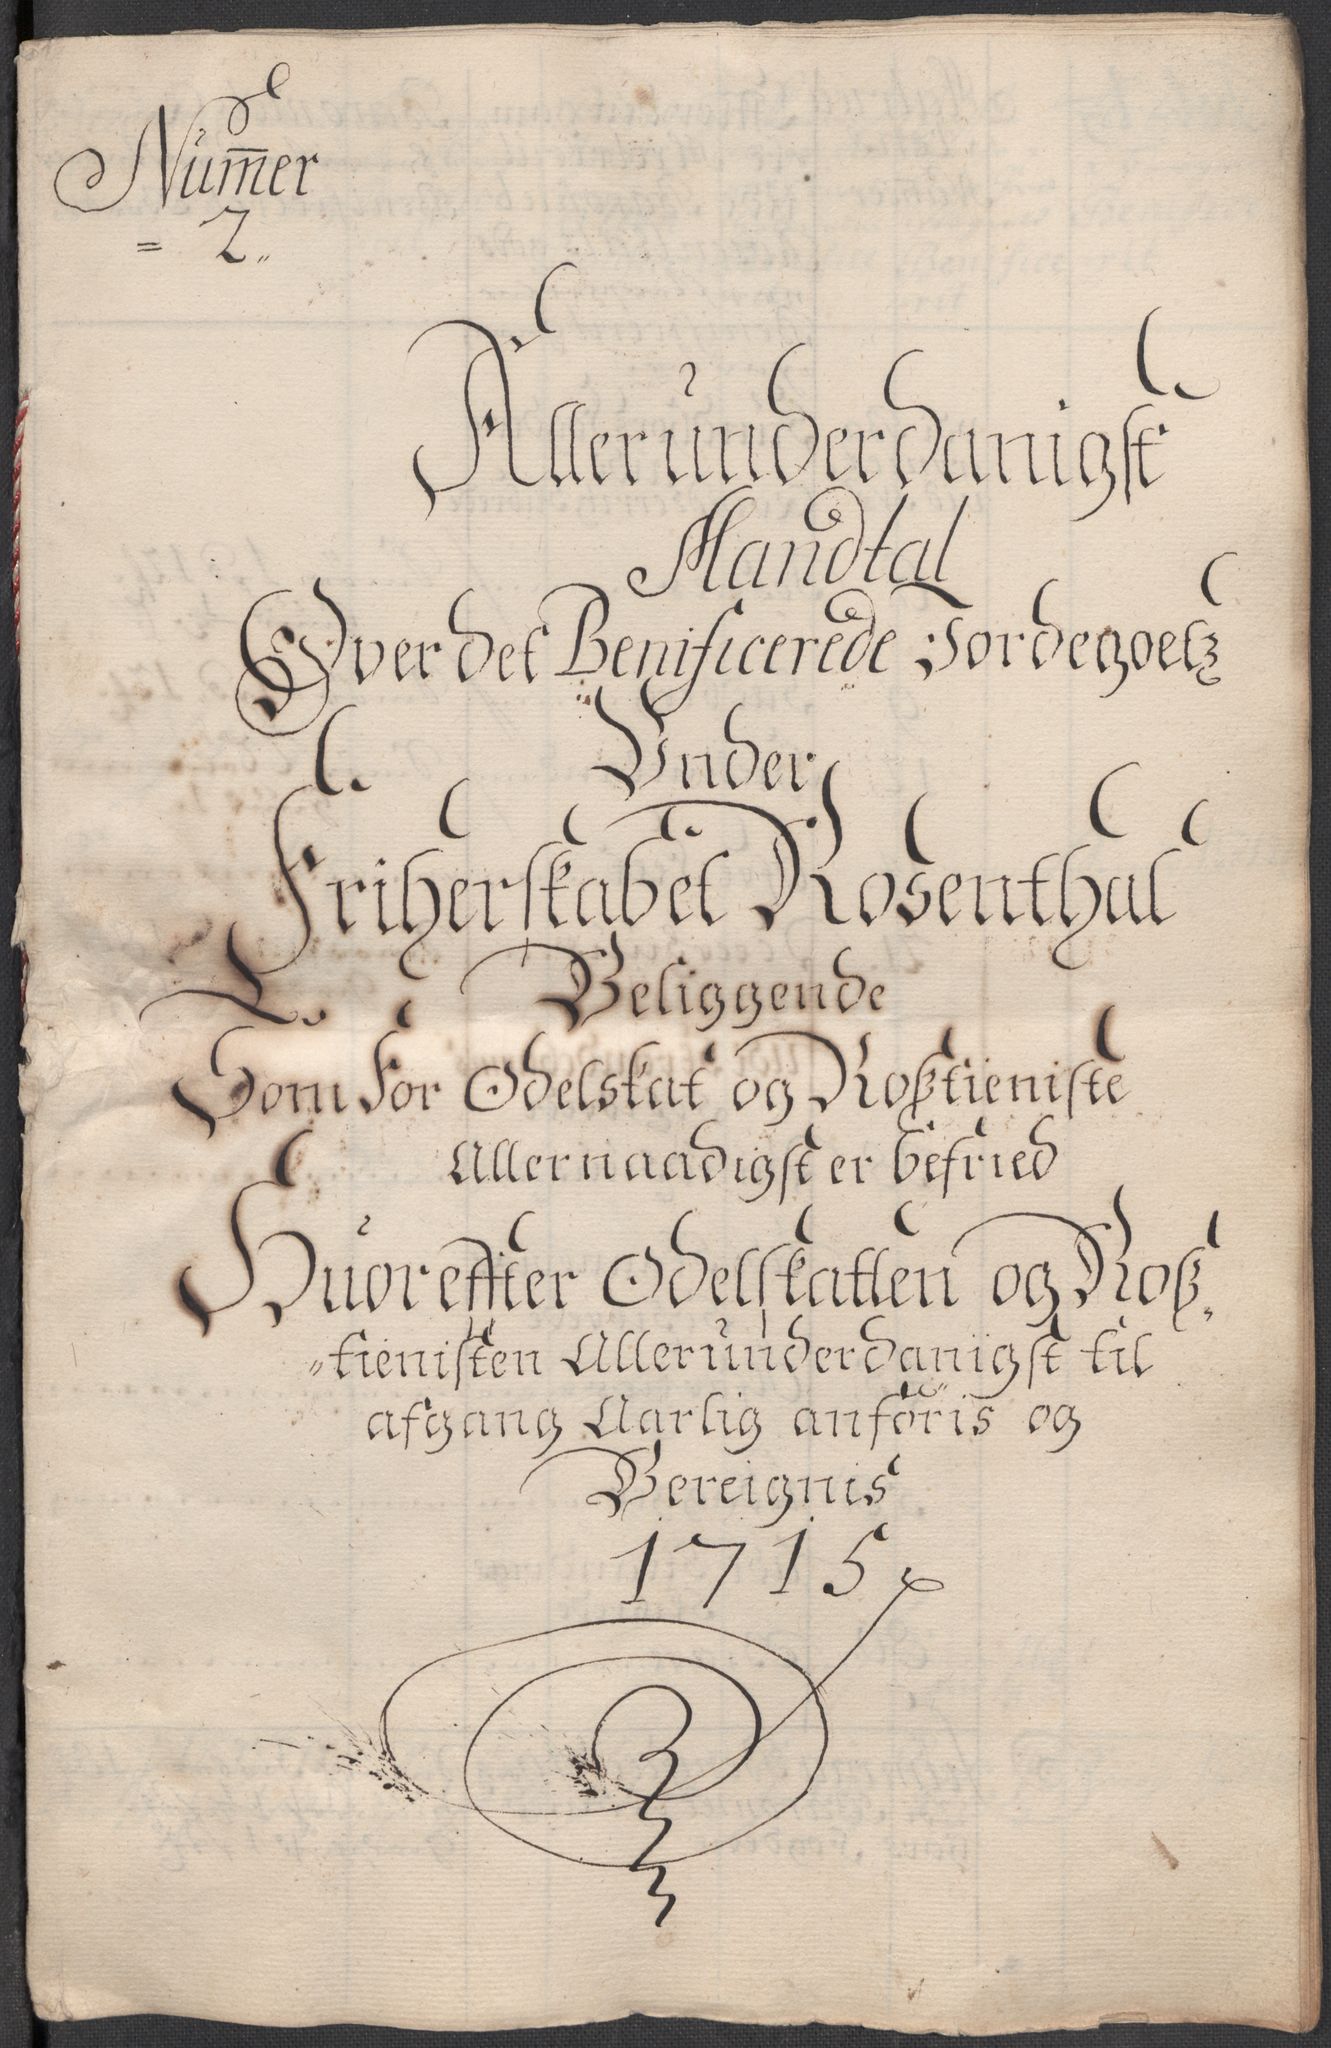 Num̄er
= 2 „
Allerunderdanigst
Mandtal
Over det Benificerede Jordegoetz
Under
Friherskabet Rosenthal
Beliggende
Som for Odelskat og Roßtieniste
Allernaadigst er befried
Huorefter Odelskatten og Roß„
„tienisten Allerunderdanigst til
afgang Aarlig anföris og
Bereignis
1715